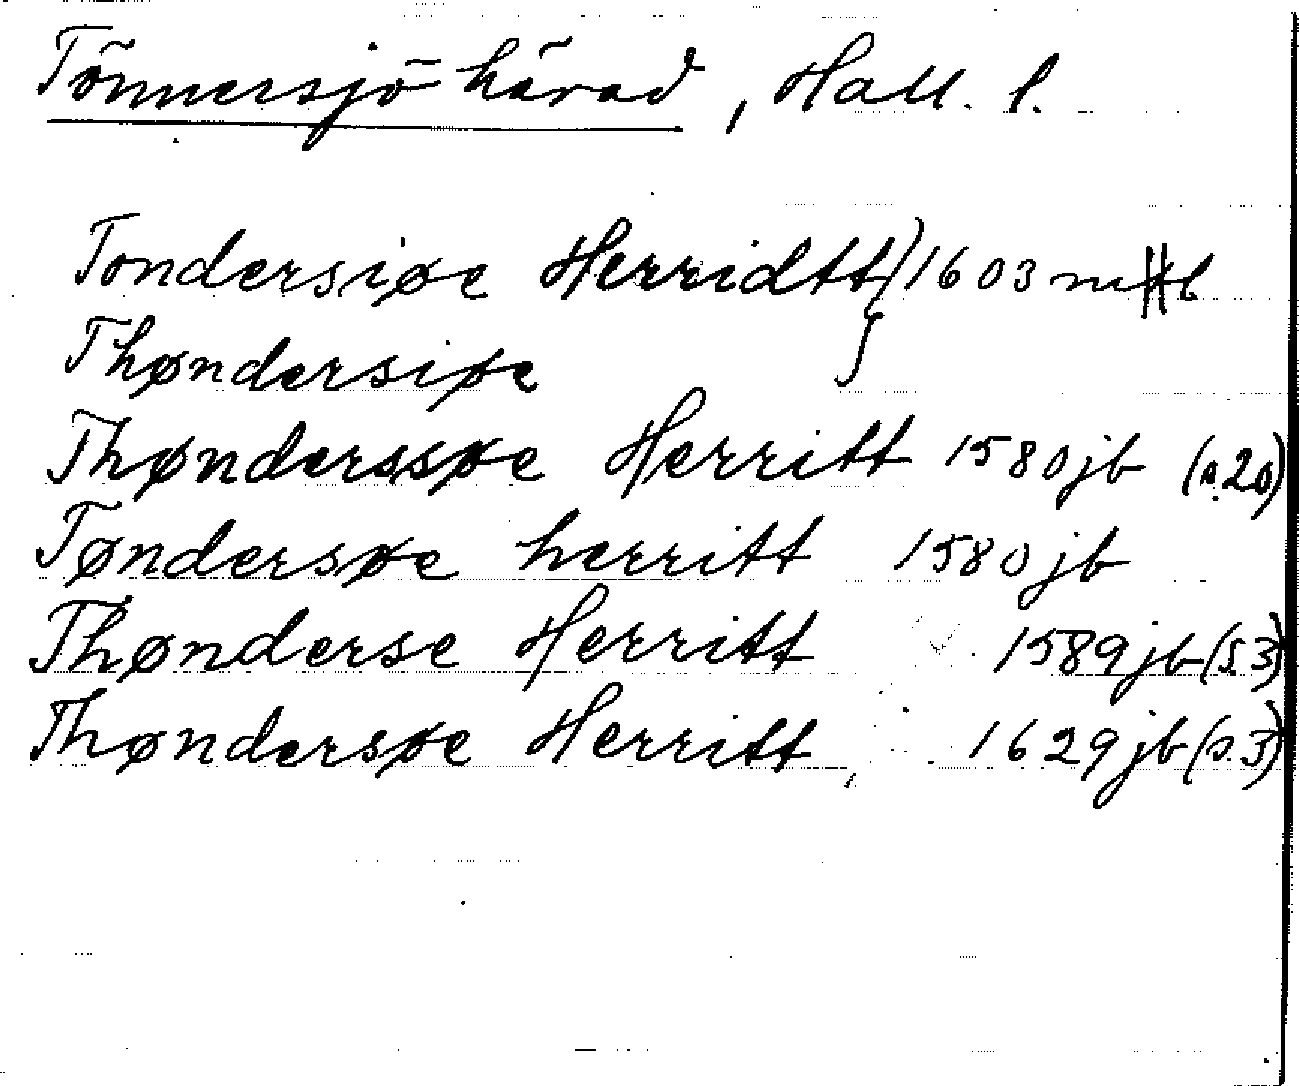 Tönnersjö härad, Hall. l.
Tondersiøe Herridtt } 1603 mtb
Thøndersiøe
Thønderssøe Herritt 1580 jb (s. 20)
Tøndersøe herritt 1580 jb
Thønderse Herritt 1589 jb (s. 3)
Thøndersøe Herritt 1629 jb (s. 3)